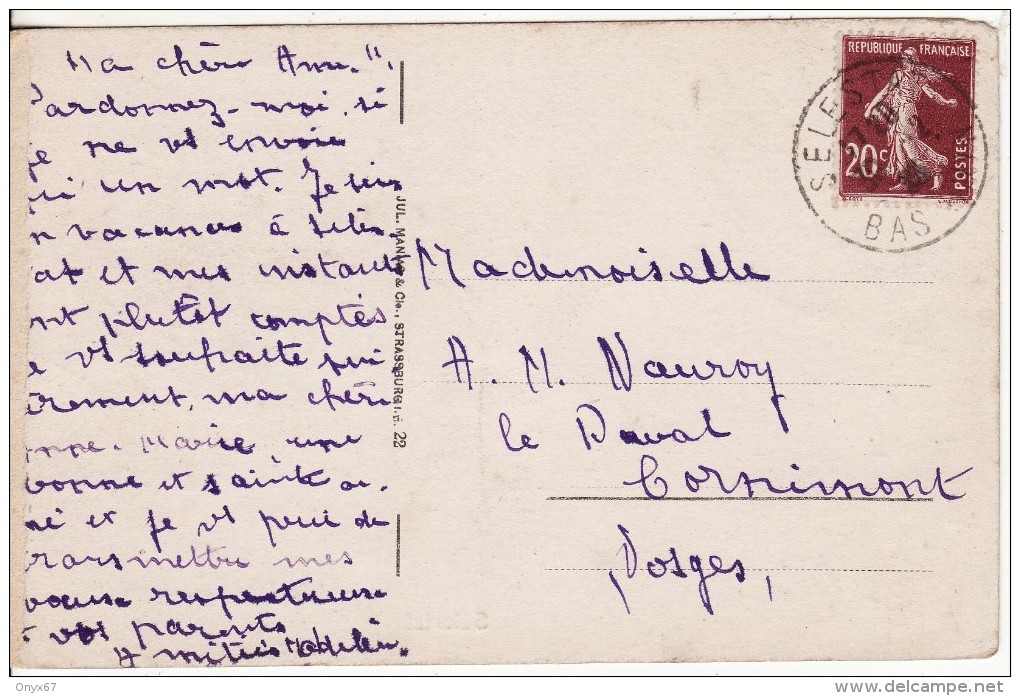 Ma chèr Ann."
Pardonnez-moi, si
je ne vs envoie
qui un mot. Je suis
n vacances à Séles
at et mes instants
nt plutôt comptés
e vs souhaite sin
èrement, ma chèr
nne. Marie, une
bonne et sainte a.
né et je vs prie de
transmettre mes
vœux respectueux
vos parents
JUL. MANIAS & Cie., STRASSBURG i. E. 22
REPUBLIQUE FRANÇAISE
20c
POSTES
SELEST
BAS
Mademoiselle
A. M. Nauroy
le Daval
Cornimont
Vosges,
Onyx67
delcampe.net